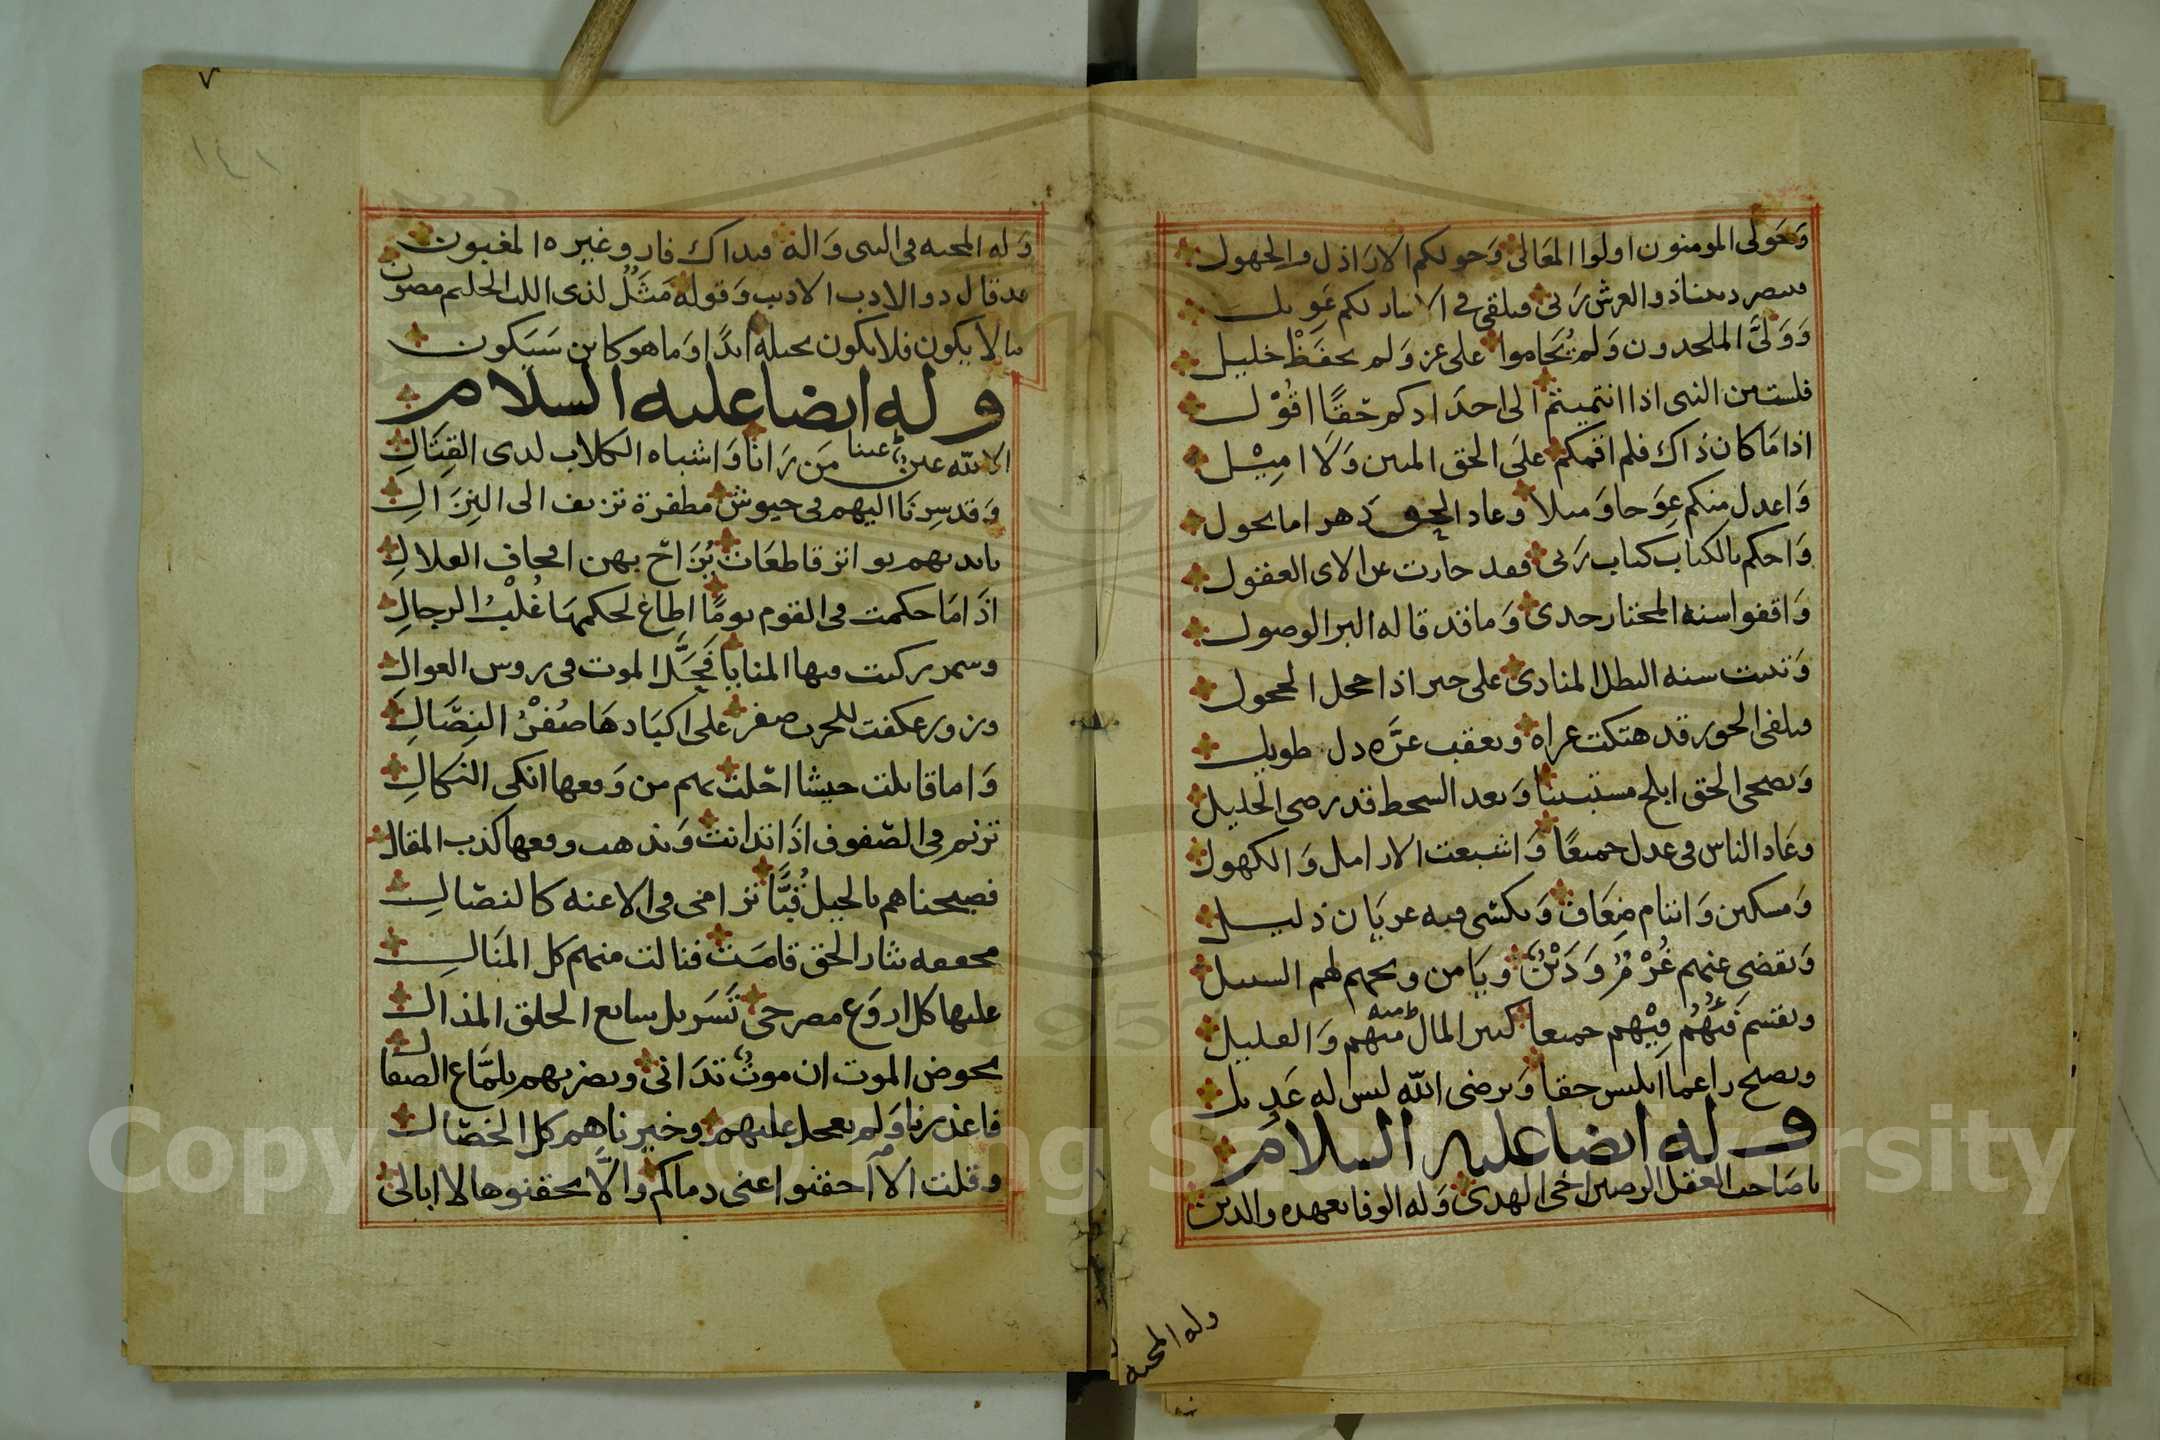 وَحَولى المومنون اولوا المعَالى وَحولكم الارَاذل والجهول
فينصرديننا ذو العرش رَبى فيلقى في لكم عَويل
وَوَلىَّ الملحدون وَلم يُحَاموا على عز وَلم يحفَظْ خليل
فلست من النبى اذا انتميتم الى احدَ ادكم حَقًّا اقُوْل
اذا مَا كان ذاك فلم اقمكم علىَ الحق المبين وَلَا امِيْل
وَاعدل منكم عِوَجا وَميلا وعاد الحق دَهرا ما يحول
وَاحكم بالكتاب كتاب رَبى فقد حارت عن الاى العقول
وَاقفوا سنه المختار جدى وَما قد قاله البر الوصول
وَتثبت سنه البطل المنادى على خير اذا الجحول
فيلقى الجور قد هتكت عراه ويعقب عزَّه ذل طويل
وَيضحى الحق ابلج مستبينا وَبعد السخط قد رضى الجليل
وعَاد الناس فى عدل جميعًا وَاشبعت الارامل وَالكهول
وَمسكين وَايتام ضِعَاف وَيكسى فيه عريَان ذليل
وَيقضى عنهم غُرْمُ وَدَيْنُ ويَامن ويحهم لهم السبيل
ويقسم فَيْئُهُم فِيْهم جميعا كثير المال منهم وَالقليل
ويصبح راغما ابليس حقا وَيرضى الله ليس له عَديل
وله ايضا عليه السلام
يا صَاحب العقل الرصين اخى الهدى وَله الوفا بعهده والدين
وله المحبه
٧
١٤١
وَله المحبه فى النبى وَاله فبذاك فاز وغيره المغبون
قد قال ذو الادب الاديب وَقوله مَثَلٌ لذى اللب الحليم مصون
ما لا يكون فلا يكون بحيله ابدًا وَما هو كاين سَيَكون
وله ايضا عليه السلام
الا لله عين من رَانا وَاشباه الكلاب لدى القِتَالِ
وَقد سِرنَا اليهم فى جيوش مظفرة تزيف الى النِزَالِ
بايديهم بواتر قاطعَات يُزَاح بهن اقحاف القلالِ
اذَا مَا حكمت فى القوم يومًا اطاع لحكمهَا غُلْبُ الرجالِ
وسمر ركبت فيها المنايا فَحَلَّ الموت فى روس العوالِ
وزور عكفت للحرب صفر على اكبَادهَا صُفْرُ النِصَّالِ
وَاما قابلت جيشا احّلت بهم من وَقعها انكى النكالِ
ترنم فى الصّفوف اذَا تدانت وَيذهب وقعها كذب المقال
فصبحناهم بالخيل قُبًّا ترامى فى الاعنه كالنصّال
محققه بثار الحق قامَت فنالت منهم كل المنَالِ
عليها كل اروَع مصرحى تَسَربل سابغ الحلق المذال
يخوض الموت ان موتٌ تدَانى ويضربهم بلمَّاع الصقال
فاعذرنا وَلم نعجل عليهم وخيرناهم كل الخصّال
وقلت الا احقنوا عنى دماكم وَالَّا تحقنوها لا ابالى